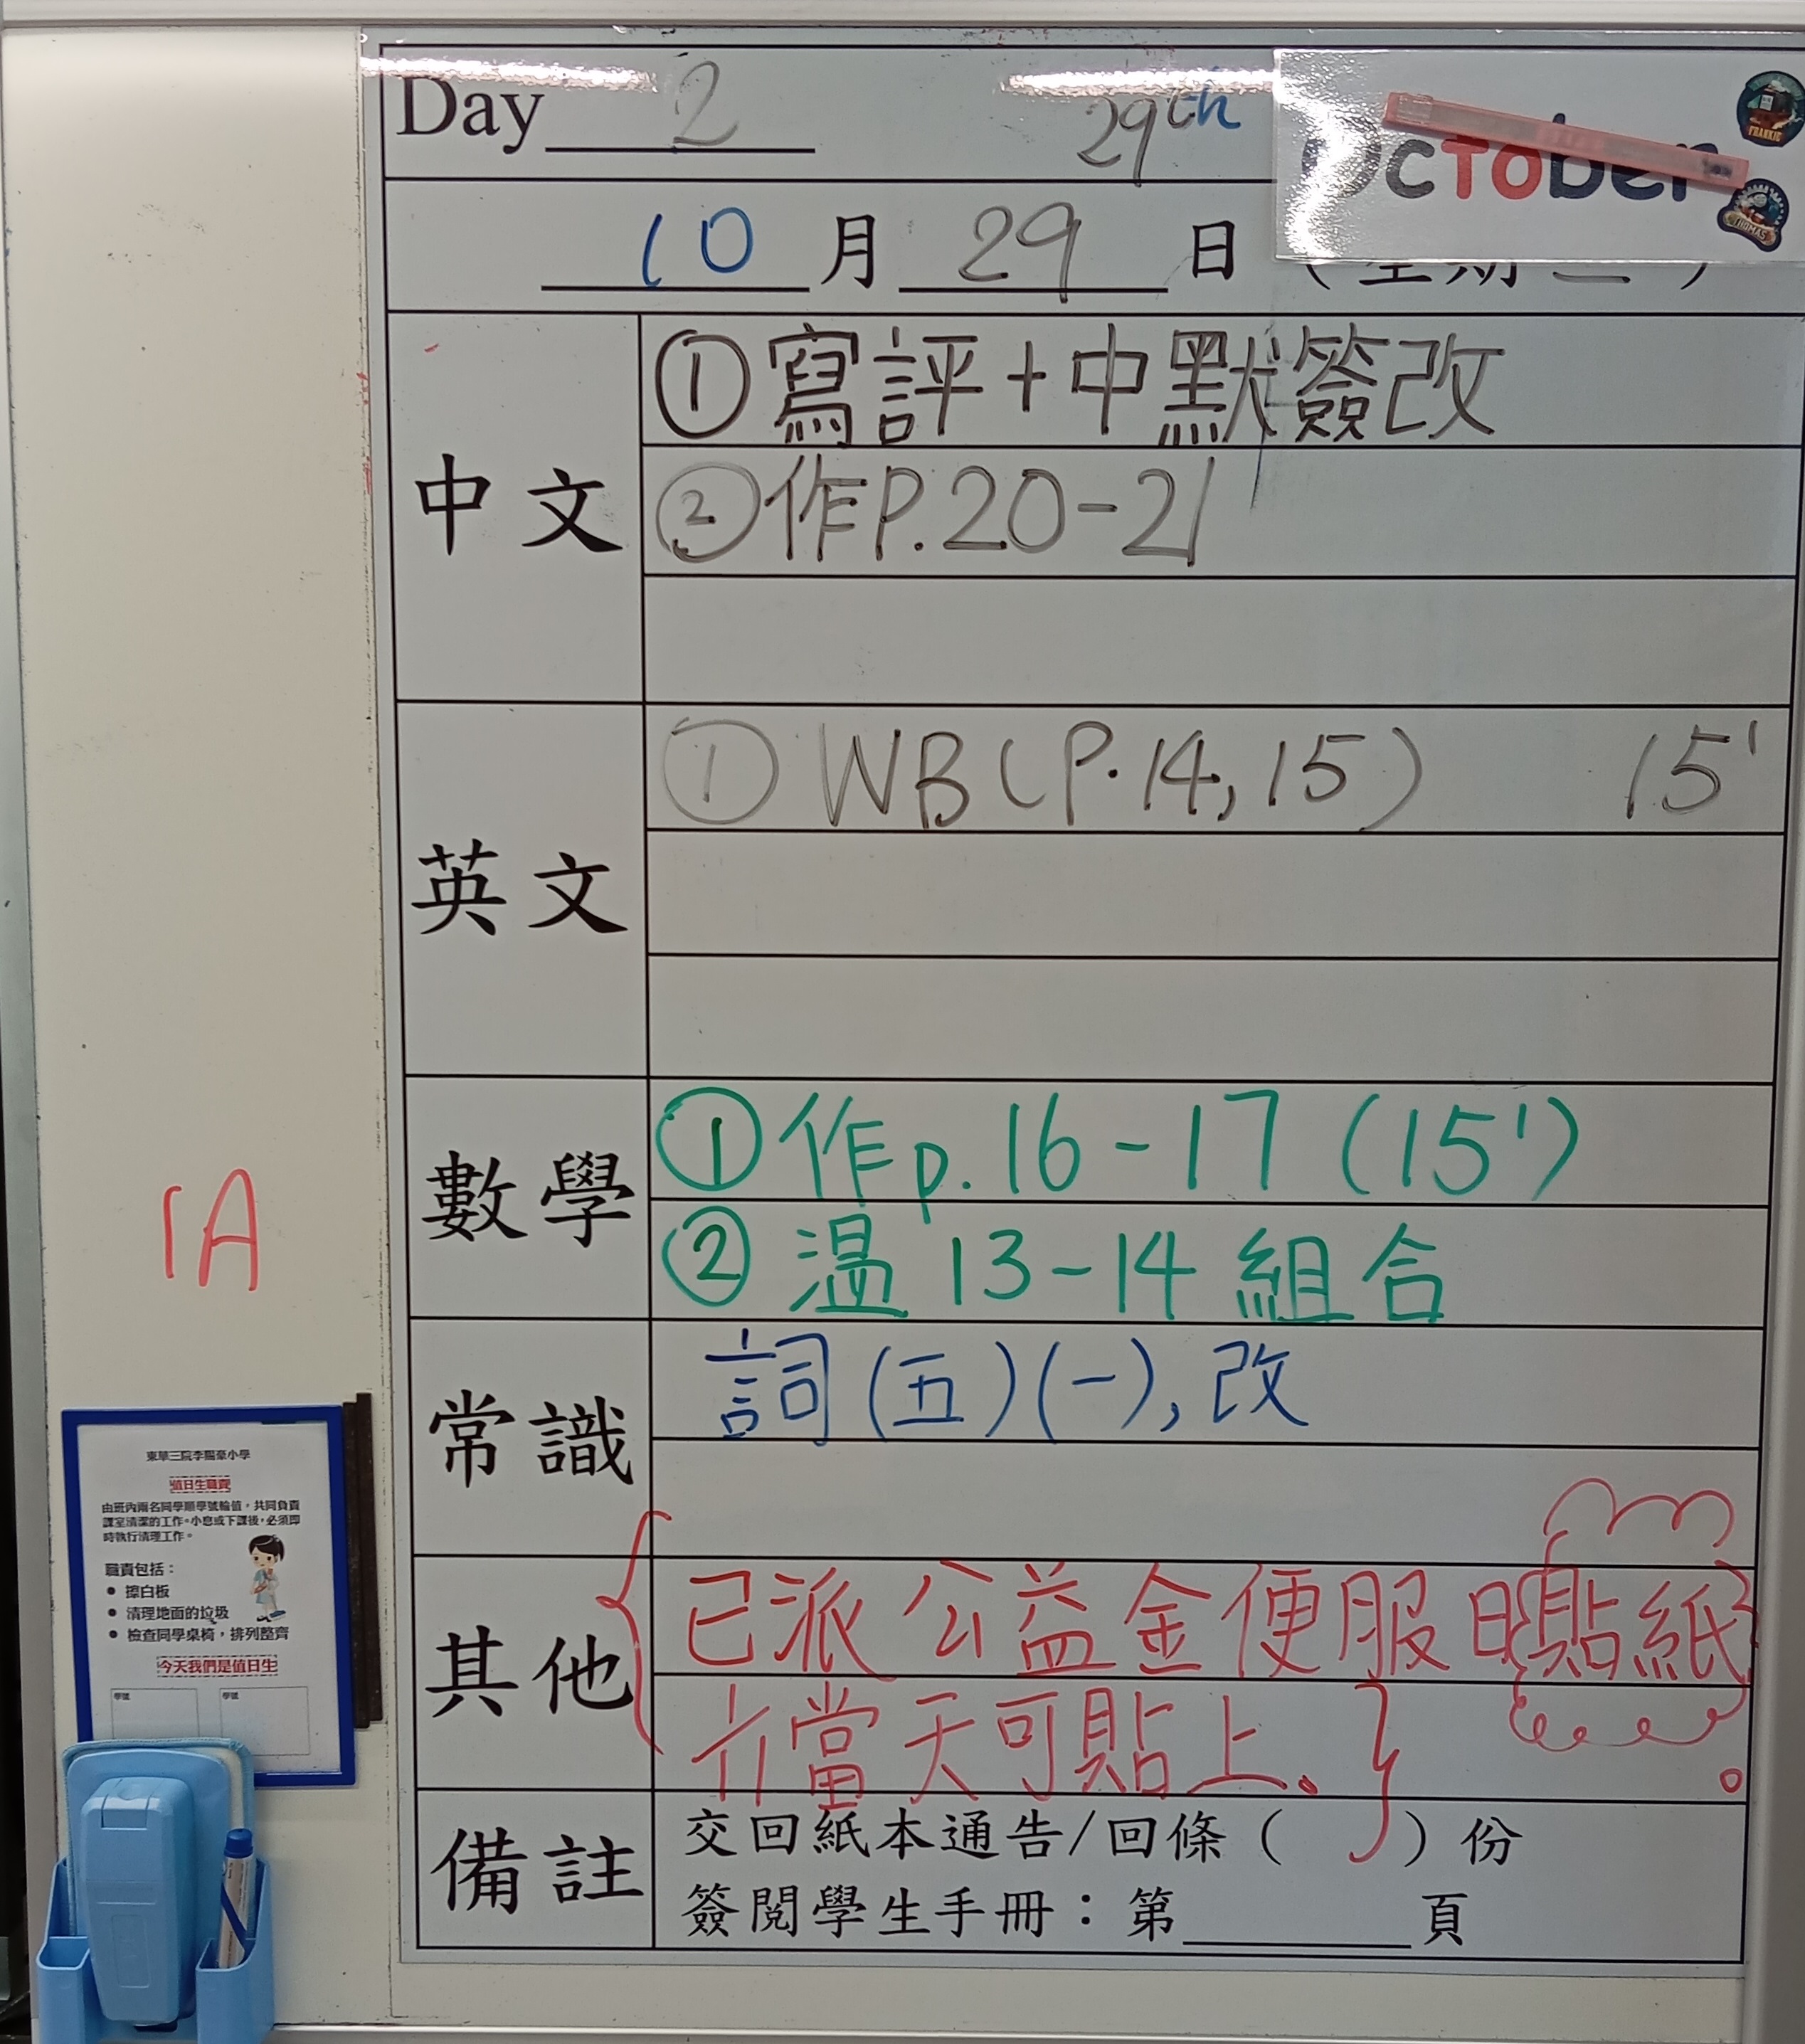 Day 2 29th October
FRANKIE
THOMAS
10 月 29 日 (星期二)
中文
①寫評+中默簽改
②作P.20-21
英文
① WB(P.14,15) 15'
數學
①作p.16-17 (15')
② 溫 13-14 組合
1A
常識
詞(五)(一),改
其他
已派公益金便服日貼紙
當天可貼上。
備註
交回紙本通告/回條( )份
簽閱學生手冊:第 頁
東華三院李賜豪小學
值日生職責
由班內兩名同學順學號輪值,共同負責
課室清潔的工作。小息或下課後,必須即
時執行清理工作。
職責包括:
● 擦白板
● 清理地面的垃圾
● 檢查同學桌椅,排列整齊
今天我們是值日生
學號 學號